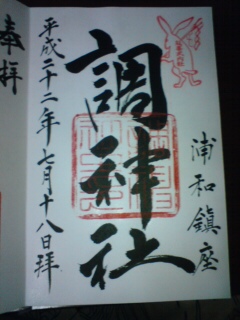 奉拝
浦和鎮座
調神社
平成二十二年七月十八日拝